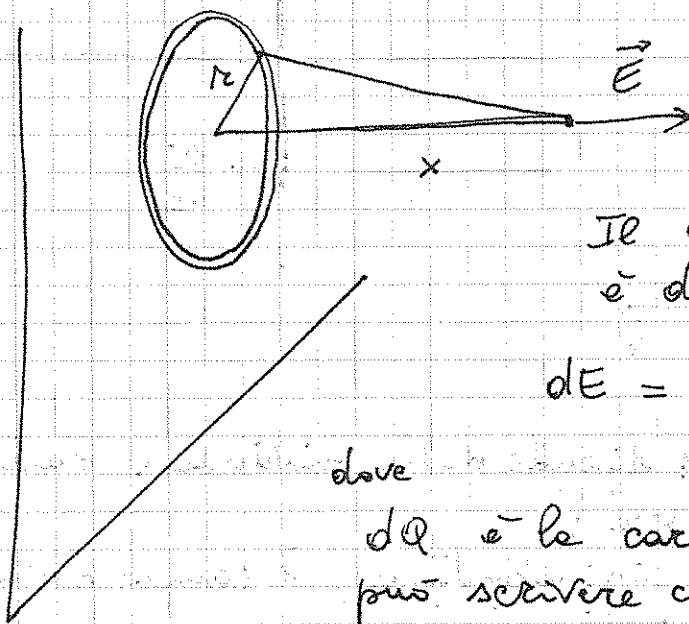 r
E
x
Il
è d
dE =
dove
dQ è la car
può scrivere c